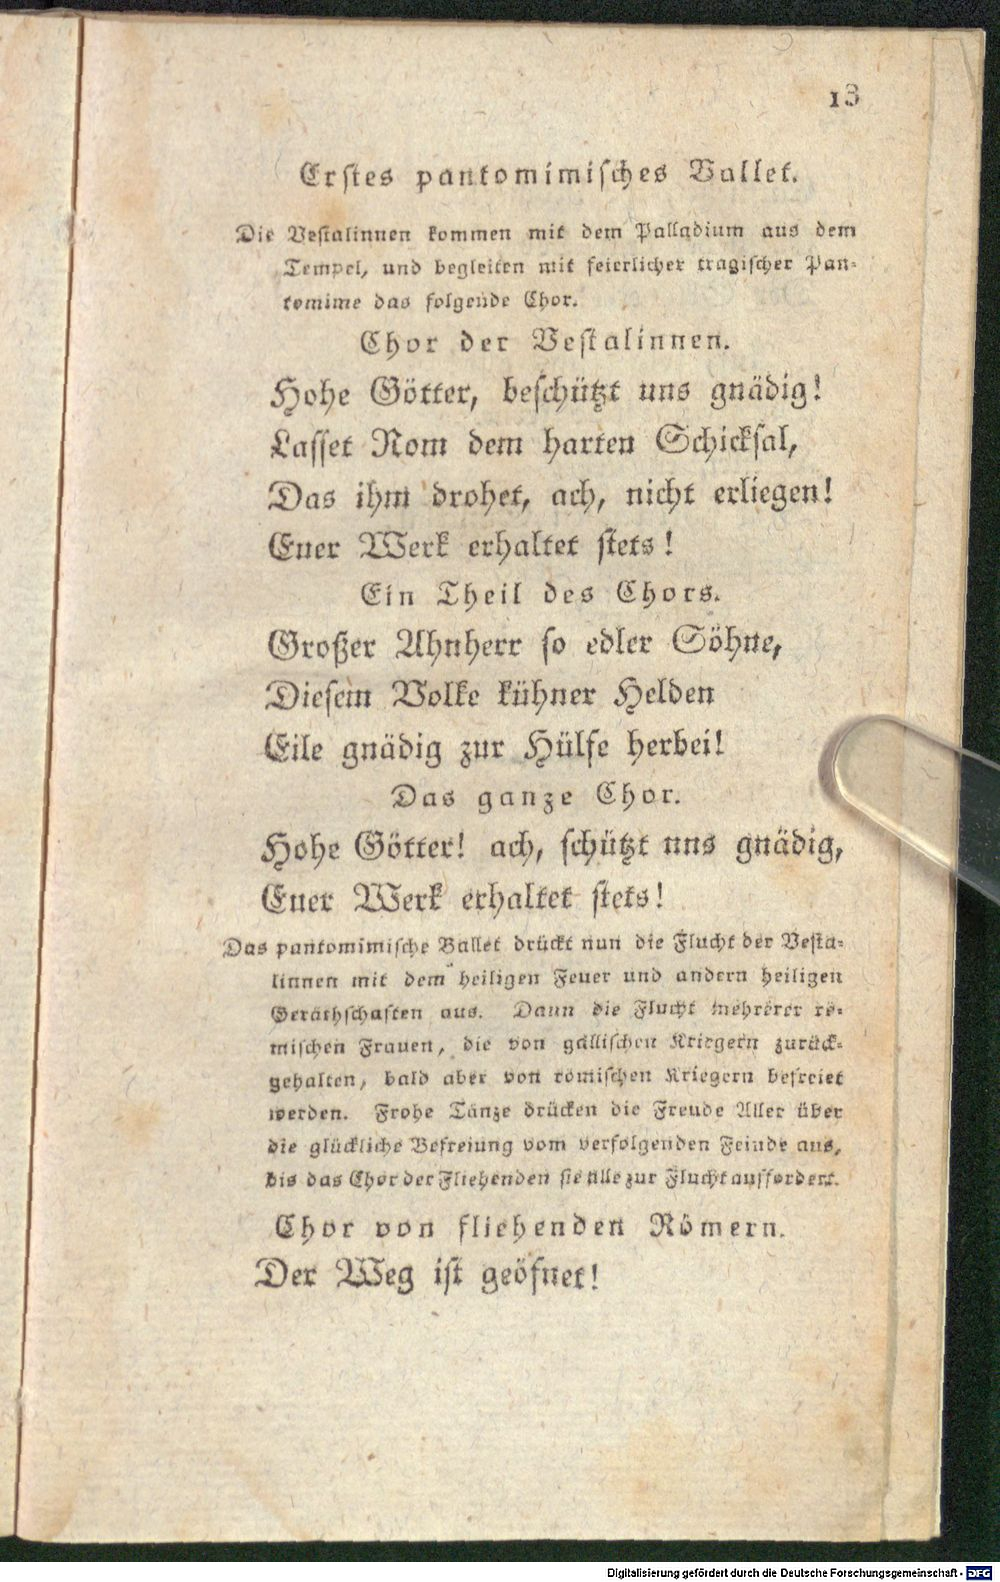 13
Erstes pantomimisches Ballet.
Die Vestalinnen kommen mit dem Palladium aus dem
Tempel, und begleiten mit feierlicher tragischer Pan-
tomime das folgende Chor.
Chor der Vestalinnen.
Hohe Götter, beschützt uns gnädig!
Lasset Rom dem harten Schicksal,
Das ihm drohet, ach, nicht erliegen!
Euer Werk erhaltet stets!
Ein Theil des Chors.
Großer Ahnherr so edler Söhne,
Diesem Volke kühner Helden
Eile gnädig zur Hülfe herbei!
Das ganze Chor.
Hohe Götter! ach, schützt uns gnädig,
Euer Werk erhaltet stets!
Das pantomimische Ballet drückt nun die Flucht der Vesta-
linnen mit dem heiligen Feuer und andern heiligen
Geräthschaften aus. Dann die Flucht mehrerer rö-
mischen Frauen, die von gallischen Kriegern zurück-
gehalten, bald aber von römischen Kriegern befreiet
werden. Frohe Tänze drücken die Freude Aller über
die glückliche Befreiung vom verfolgenden Feinde aus,
bis das Chor der Fliehenden sie alle zur Flucht auffordert.
Chor von fliehenden Römern.
Der Weg ist geöfnet!
Digitalisierung gefördert durch die Deutsche Forschungsgemeinschaft - DFG